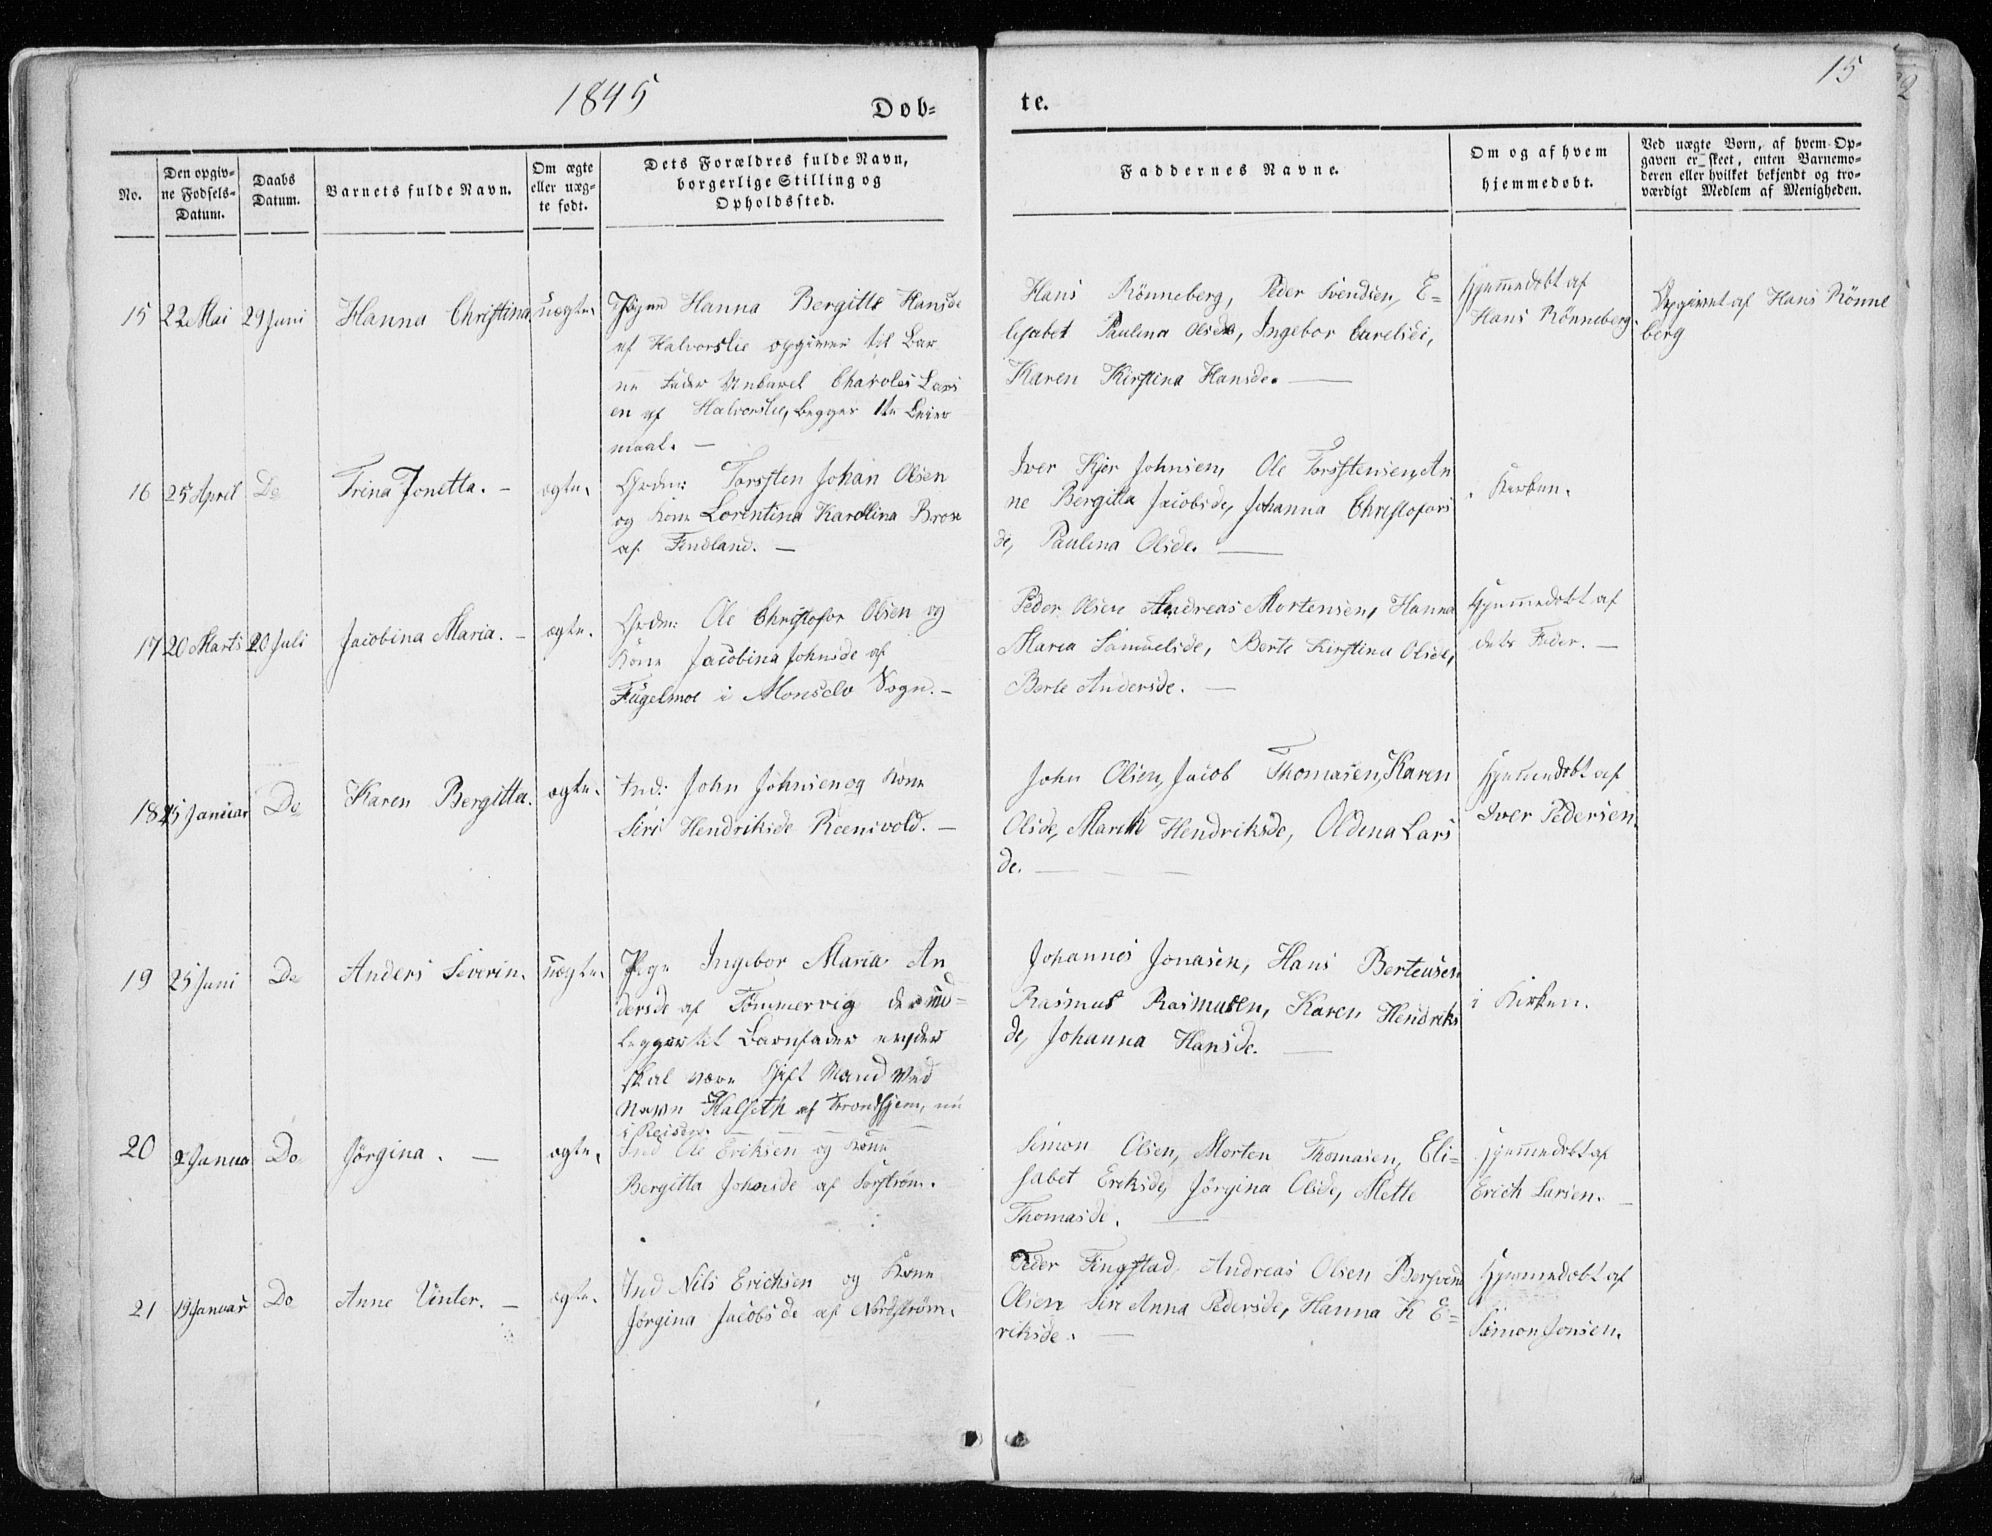 1845
15
Døb-
te.
No.
Den opgiv-
ne Fødsels-
Datum.
Daabs
Datum.
Barnets fulde Navn.
Om ægte
eller uæg-
te født.
Dets Forældres fulde Navn,
borgerlige Stilling og
Opholdssted.
Faddernes Navne.
Om og af hvem
hjemmedøbt.
Ved uægte Børn, af hvem Op-
gaven er skeet, enten Barnemo-
deren eller hvilket bekjendt og tro-
værdigt Medlem af Menigheden.
15 22 Mai 29 Juni Hanna Christina uægte.
Hanna Bergitte Hansde
af Halvorslie opgiver til Bar
ne Fader Unkarel Charoles Lars
en af Halvorslie, begges 1te Leier
maal. —
Hans Rönneberg, Peder Svendsen, E-
lisabet Paulina Olsde, Ingebor Carelsde,
Karen Kirstina Hansde. —
Hjemmedøbt af
Hans Rönneberg.
Opgivet af Hans Rönne
berg
16 25 April Do Trina Jonetta. — ægte.
Torsten Johan Olsen
og Kone Lorentina Karolina Brose
af Findland. —
Iver Kjer Johnsen, Ole Torstensen, An
ne Bergitta Jacobsde, Johanna Christofers
de, Paulina Olsde. —
i Kirken.
17 20 Marts 20 Juli Jacobina Maria. — ægte.
Ole Christofer Olsen og
Kone Jacobina Johnsde af
Fugelmoe i Monselv Sogn. —
Peder Olsen Andreas Mortensen, Hanna
Maria Samuelsde, Berte Kirstina Olsde,
Berte Andersde. —
Hjemmedøbt af
dets Fader. —
18 15 Januar Do Karen Bergitta. ægte.
Ind: John Johnsen og Kone
Siri Hendriksde Roenvold. —
John Olsen, Jacob Thomasen, Karen
Olsde, Mareth Hendriksde, Oldena Lars
de. —
Hjemmedøbt af
Iver Pedersen.
19 25 Juni Do Anders Severin. uægte.
Pige Ingebor Maria An
dersde af Tømmervig der ud-
legger til Barnfader en der
skal være Gift Mand ved
Navn Halseth af Trondhjem, nu
i Reisen.
Johannes Jonasen, Hans Bertensen
Rasmus Rasmusen, Karen Hendriks
de, Johanna Hansde. —
i Kirken.
20 2 Janua Do Jørgina. — ægte.
Ind Ole Eriksen og Kone
Bergitta Johnsde af Sørstrøm.
Simon Olsen, Morten Thomasen, Eli-
sabet Eriksde, Jørgina Olsde, Mette
Thomasde. —
Hjemmedøbt af
Erich Larsen. —
21 19 Januar Do Anne Vinter. — ægte.
Ind Nils Erichsen og Kone
Jörgina Jacobsde af Nordstrøm.
Peder Fingstad, Andreas Olsen Borsvend
Olsen Siri Anna Pedersde, Hanna K E-
riksde. —
Hjemmedøbt af
Simon Jonsen.